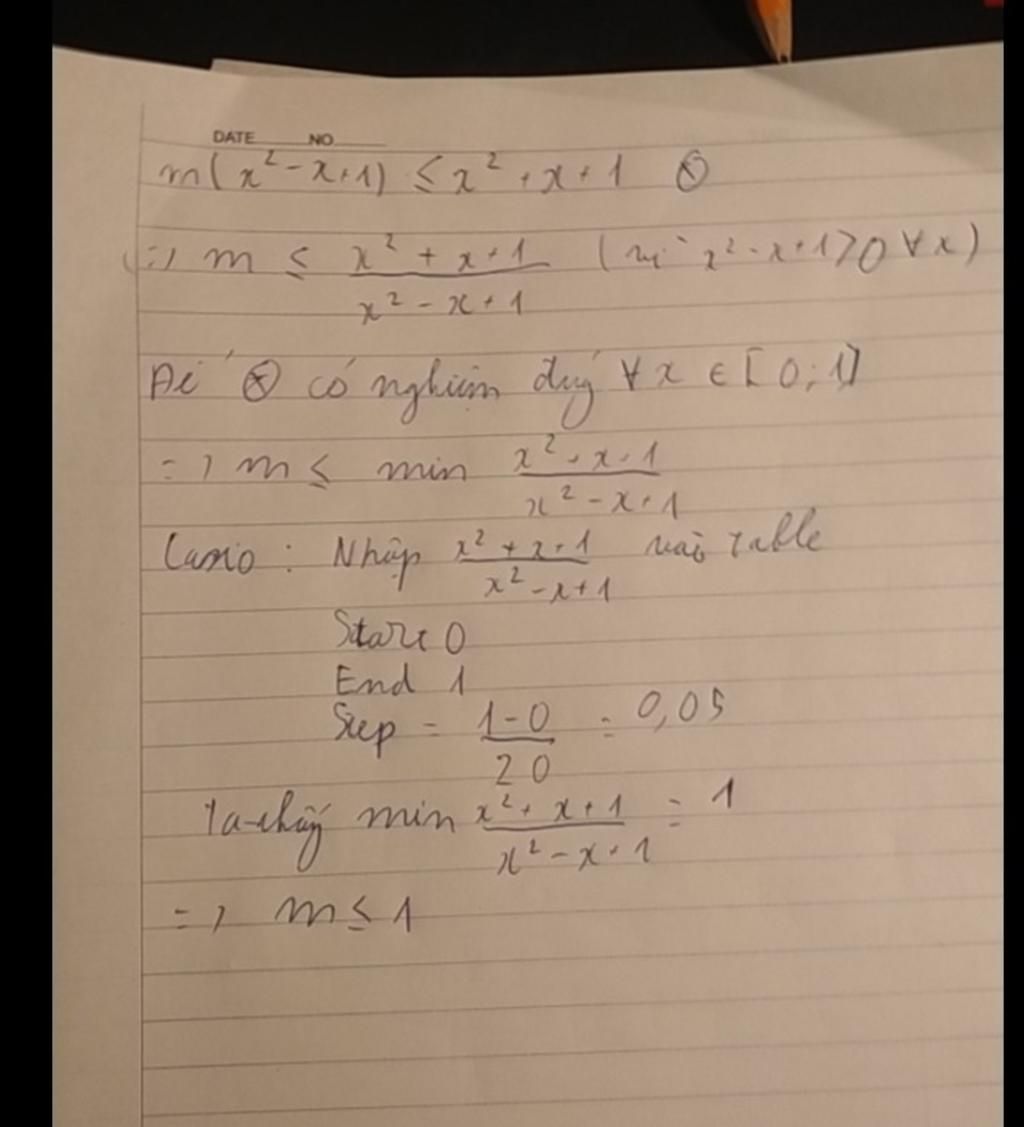 DATE NO
m(x² - x + 1) ≤ x² + x + 1 ⊗
=> m ≤ (x² + x + 1)/(x² - x + 1) (vì x² - x + 1 > 0 ∀x)
Để ⊗ có nghiệm đúng ∀x ∈ [0; 1]
=> m ≤ min (x² + x + 1)/(x² - x + 1)
Casio : Nhập (x² + x + 1)/(x² - x + 1) vào table
Start 0
End 1
Step = (1-0)/20 = 0,05
Ta thấy min (x² + x + 1)/(x² - x + 1) = 1
=> m ≤ 1